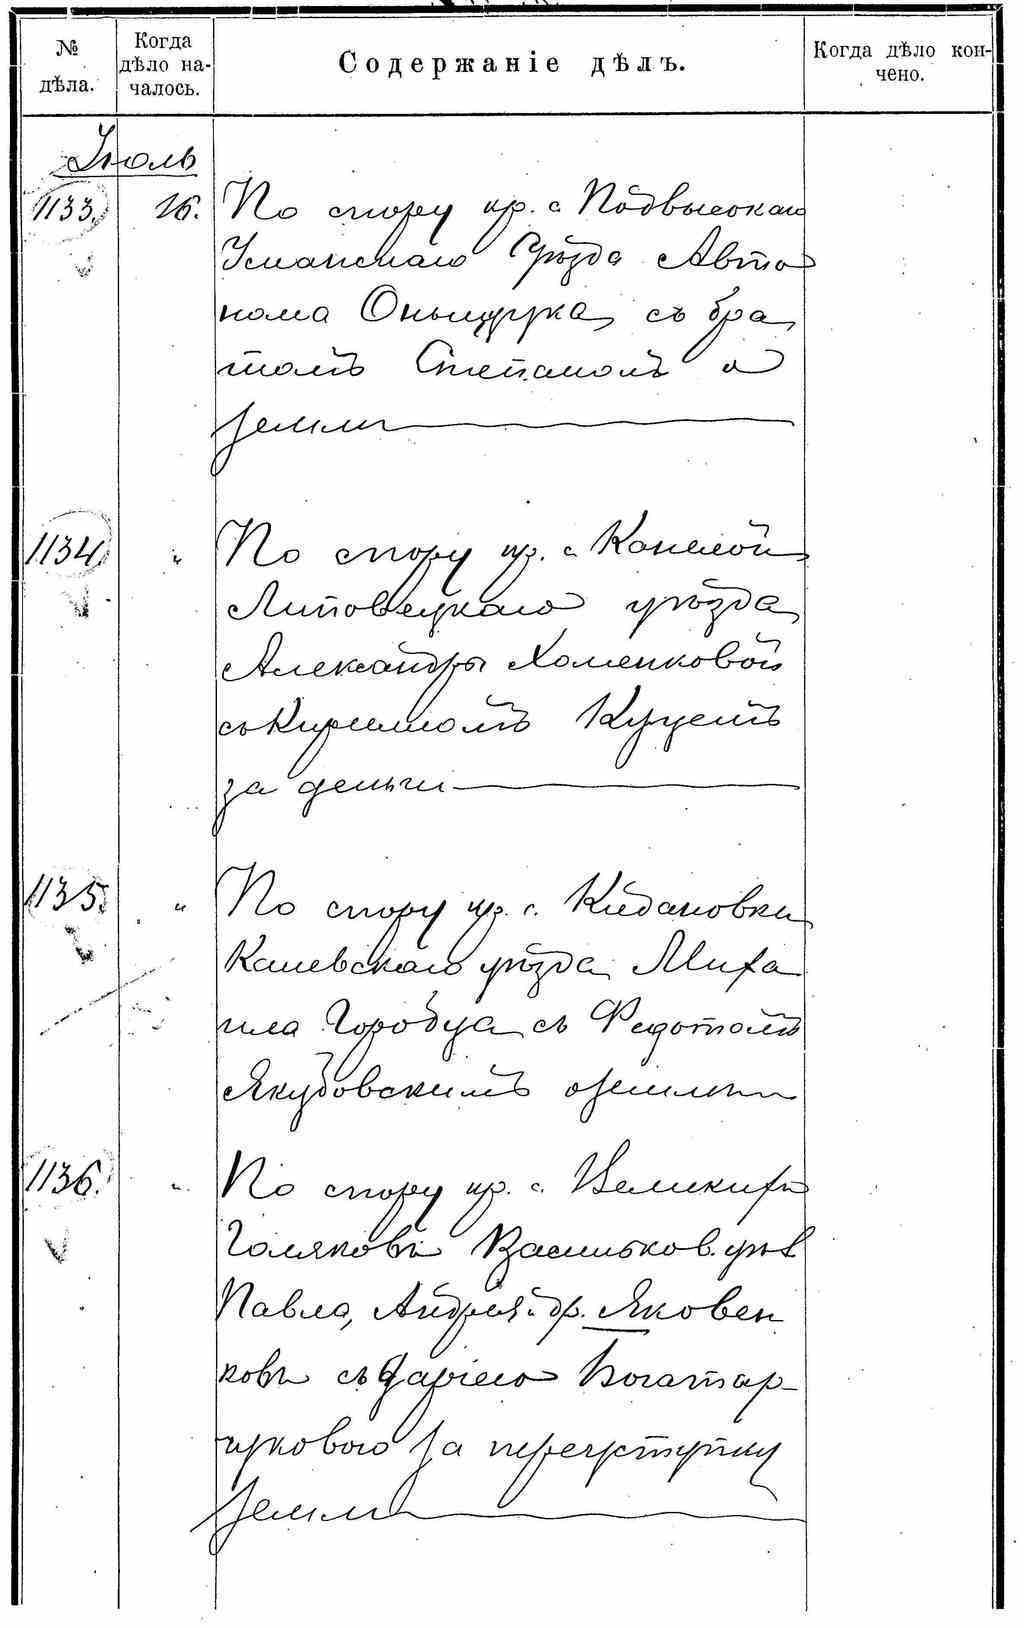 № дѣла.
Когда дѣло началось.
Содержаніе дѣлъ.
Когда дѣло кончено.
Іюль
1133. 16. По спору кр. с. Подвысокаго
Уманскаго Уѣзда Авто
нома Оныщука съ бра
томъ Степаномъ о
землѣ
1134 " По спору кр. с. Конелой
Липовецкаго уѣзда
Александры Хоменковой
съ Кирилломъ Куцемъ
за деньги
1135. " По спору кр. с. Кидановки
Каневскаго уѣзда Миха
ила Городца съ Федотомъ
Якубовскимъ о землѣ
1136. " По спору кр. с. Великихъ
Гуляковъ Васильков. уѣз
Павла, Андрея и др. Яковен
ковъ съ Даріею Богатар-
чуковою за переуступку
земли